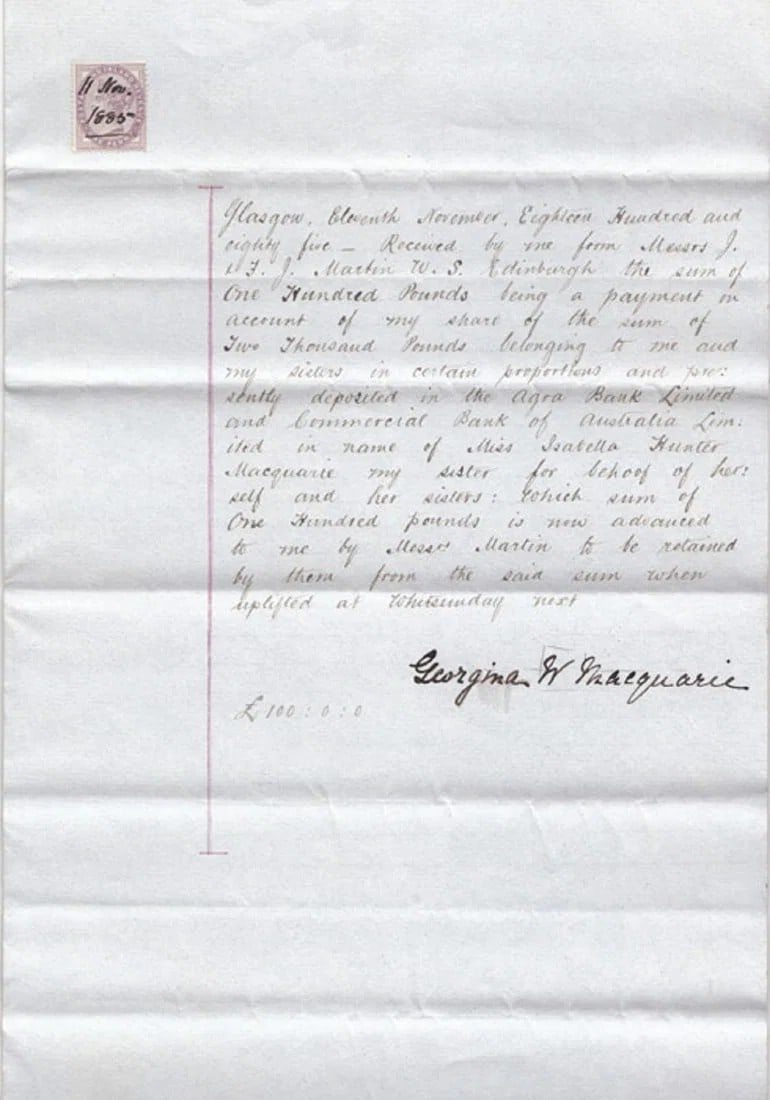 11 Nov.
1885
Glasgow, Eleventh November, Eighteen Hundred and
eighty five — Received by me from Messrs J.
& F. J. Martin W. S. Edinburgh the sum of
One Hundred Pounds being a payment on
account of my share of the sum of
Two Thousand Pounds belonging to me and
my sisters in certain proportions and pre:
sently deposited in the Agra Bank Limited
and Commercial Bank of Australia Lim:
ited in name of Miss Isabella Hunter
Macquarie my sister for behoof of her:
self and her sisters: Which sum of
One Hundred pounds is now advanced
to me by Messrs Martin to be retained
by them from the said sum when
uplifted at Whitsunday next
Georgina W Macquarie
£100:0:0